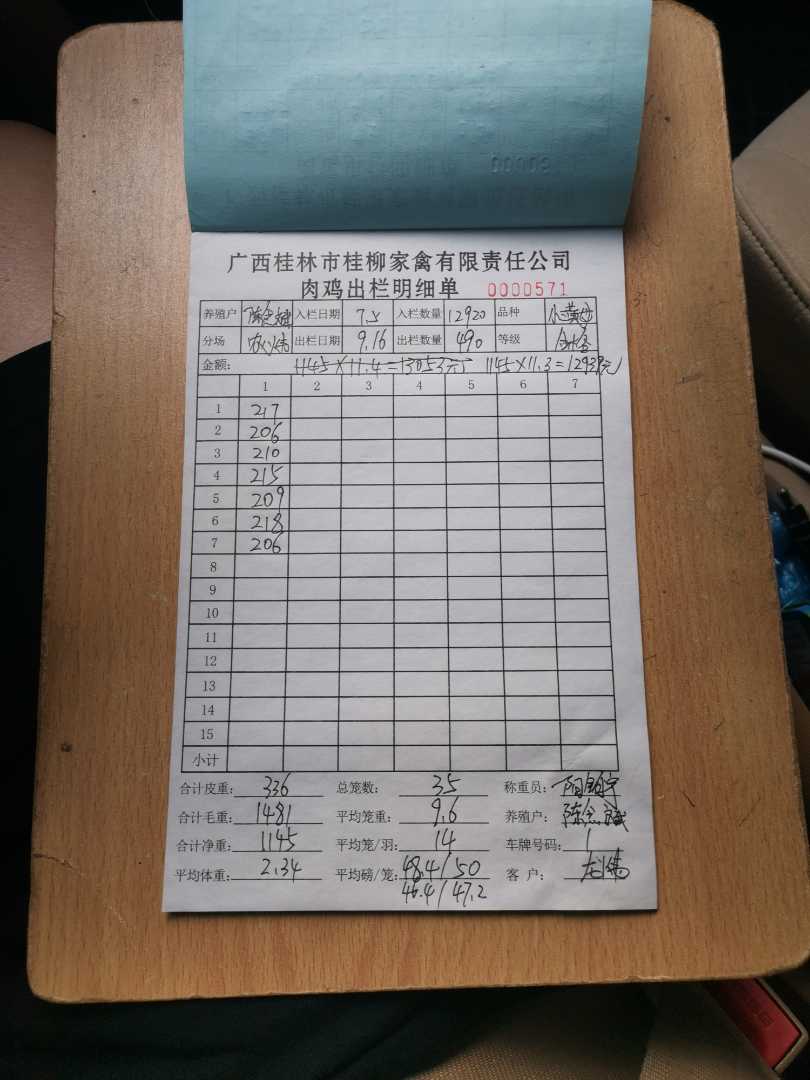 广西桂林市桂柳家禽有限责任公司
肉鸡出栏明细单 0000571
养殖户 陈念斌 入栏日期 7.5 入栏数量 12920 品种 小黄母
分场 出栏日期 9.16 出栏数量 490 等级
金额: 1145×11.4=13053元 1145×11.3=12939元
1 2 3 4 5 6 7
1 217
2 206
3 210
4 215
5 209
6 218
7 206
8
9
10
11
12
13
14
15
小计
合计皮重: 336 总笼数: 35 称重员:
合计毛重: 1481 平均笼重: 9.6 养殖户: 陈念斌
合计净重: 1145 平均笼/羽: 14 车牌号码: 1
平均体重: 2.34 平均磅/笼: 48.4/50 客 户: 龙伟
46.4/47.2